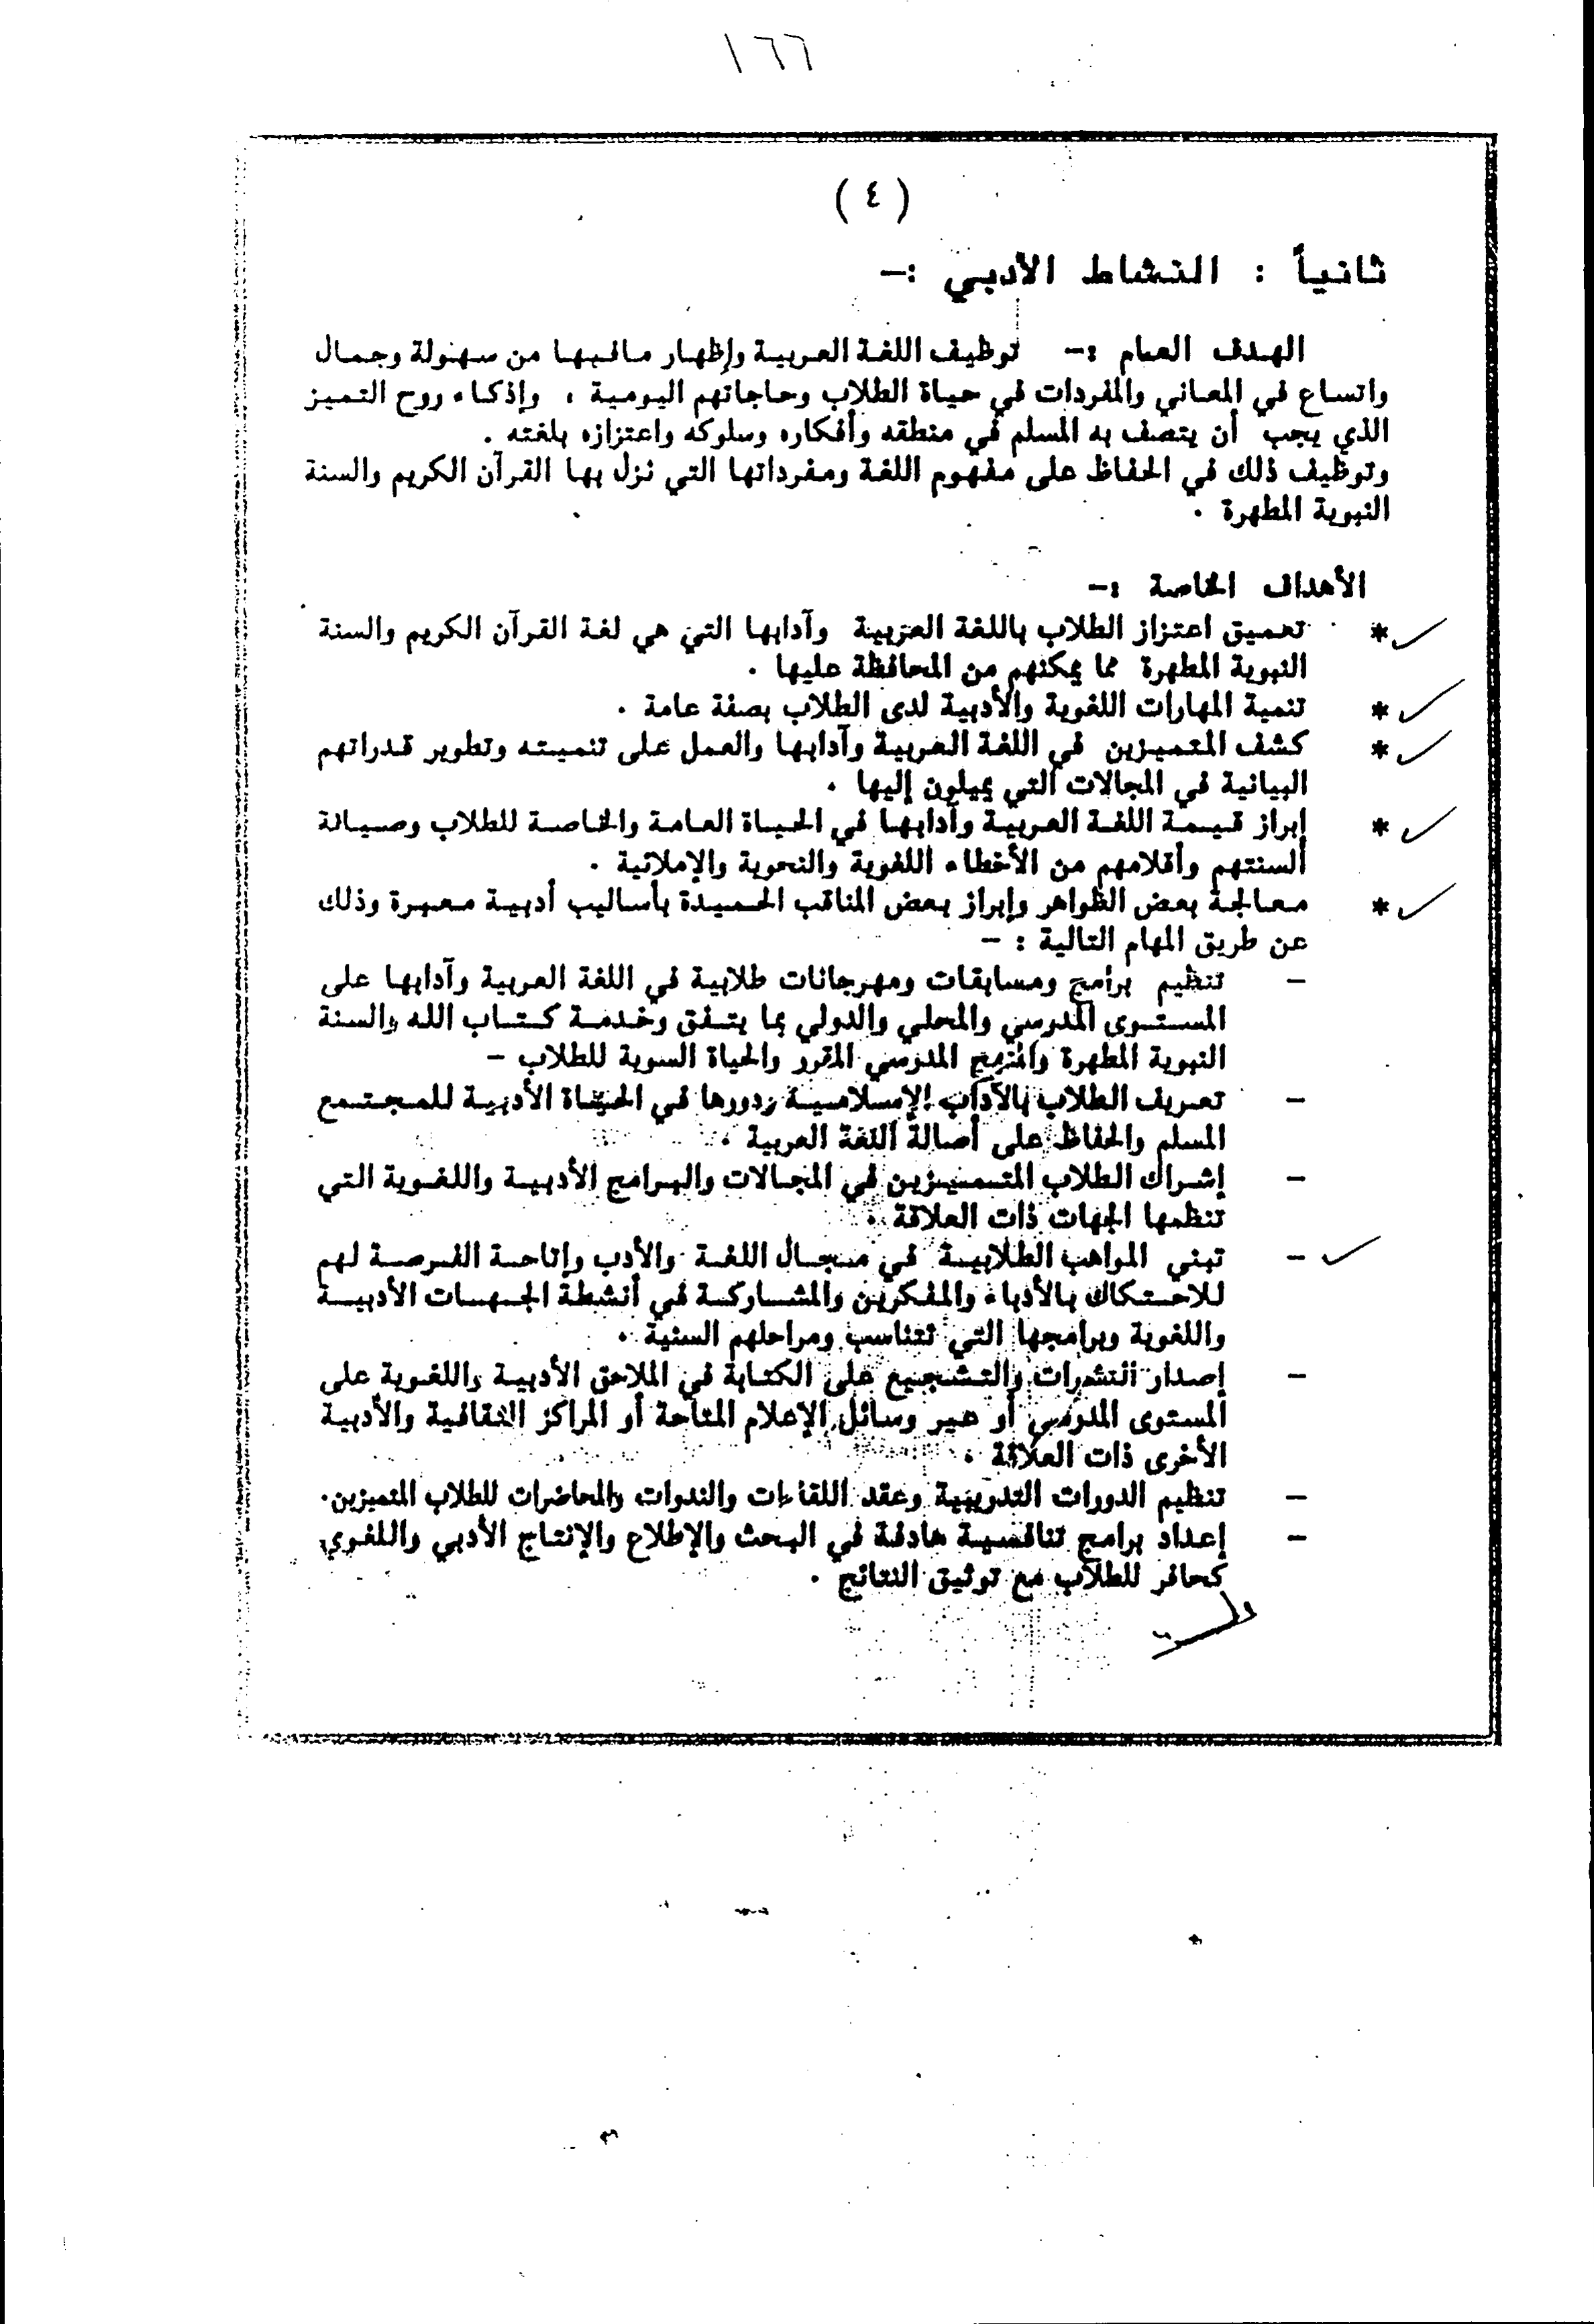 ١٦٦
( ٤ )
ثانياً : النشاط الأدبي :-
الهدف العام :- توظيف اللغة العربية وإظهار مافيها من سهولة وجمال
واتساع في المعاني والمفردات في حياة الطلاب وحاجاتهم اليومية ، وإذكاء روح التميز
الذي يجب أن يتصف به المسلم في منطقه وأفكاره وسلوكه واعتزازه بلغته .
وتوظيف ذلك في الحفاظ على مفهوم اللغة ومفرداتها التي نزل بها القرآن الكريم والسنة
النبوية المطهرة .
الأهداف الخاصة :-
* تعميق اعتزاز الطلاب باللغة العربية وآدابها التي هي لغة القرآن الكريم والسنة
النبوية المطهرة مما يمكنهم من المحافظة عليها .
* تنمية المهارات اللغوية والأدبية لدى الطلاب بصفة عامة .
* كشف المتميزين في اللغة العربية وآدابها والعمل على تنميته وتطوير قدراتهم
البيانية في المجالات التي يميلون إليها .
* إبراز قيمة اللغة العربية وآدابها في الحياة العامة والخاصة للطلاب وصيانة
ألسنتهم وأقلامهم من الأخطاء اللغوية والنحوية والإملائية .
* معالجة بعض الظواهر وإبراز بعض المناقب الحميدة بأساليب أدبية معبرة وذلك
عن طريق المهام التالية : -
- تنظيم برامج ومسابقات ومهرجانات طلابية في اللغة العربية وآدابها على
المستوى المدرسي والمحلي والدولي بما يتفق وخدمة كتاب الله والسنة
النبوية المطهرة والمنهج المدرسي المقرر والحياة السوية للطلاب -
- تعريف الطلاب بالآداب الإسلامية ودورها في الحياة الأدبية للمجتمع
المسلم والحفاظ على أصالة اللغة العربية .
- إشراك الطلاب المتميزين في المجالات والبرامج الأدبية واللغوية التي
تنظمها الجهات ذات العلاقة .
- تبني المواهب الطلابية في مجال اللغة والأدب وإتاحة الفرصة لهم
للاحتكاك بالأدباء والمفكرين والمشاركة في أنشطة الجهات الأدبية
واللغوية وبرامجها التي تتناسب ومراحلهم السنية .
- إصدار النشرات والتشجيع على الكتابة في الملاحق الأدبية واللغوية على
المستوى المدرسي أو عبر وسائل الإعلام المتاحة أو المراكز الثقافية والأدبية
الأخرى ذات العلاقة .
- تنظيم الدورات التدريبية وعقد اللقاءات والندوات والمحاضرات للطلاب المتميزين.
- إعداد برامج تنافسية هادفة في البحث والإطلاع والإنتاج الأدبي واللغوي
كحافز للطلاب مع توثيق النتائج .